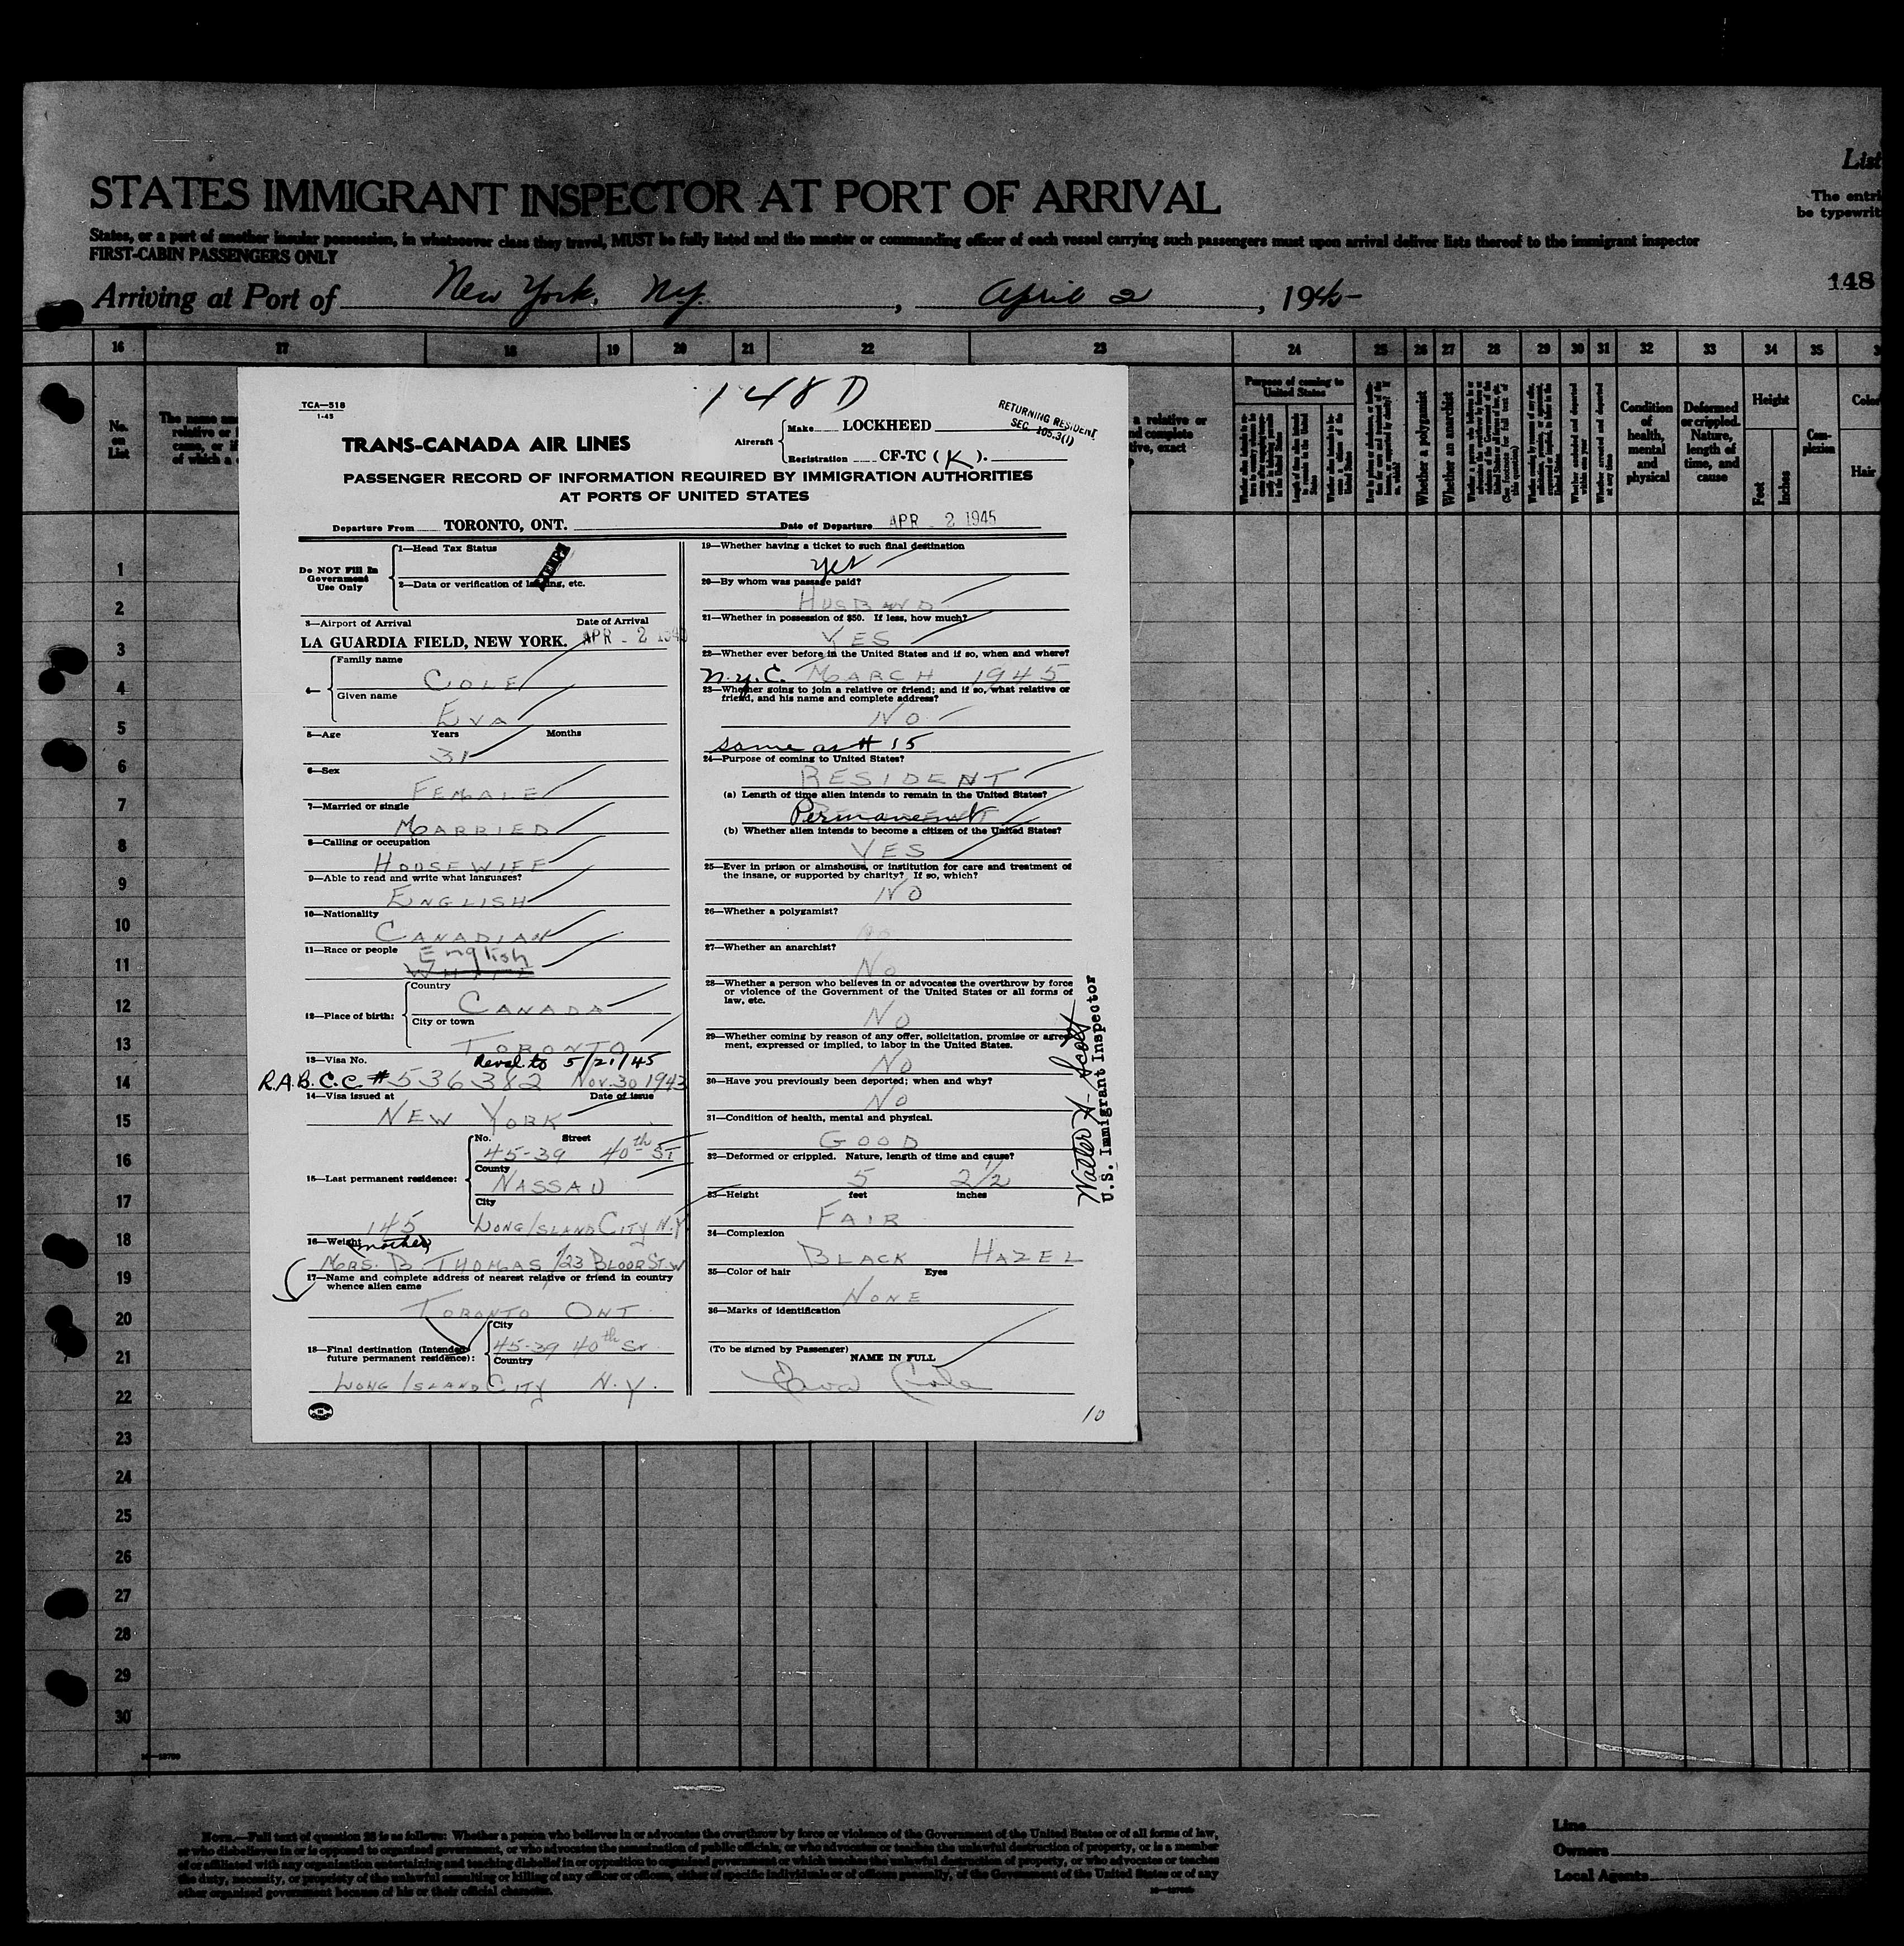 List
STATES IMMIGRANT INSPECTOR AT PORT OF ARRIVAL
The entri
be typewrit
States, or a part of another insular possession, in whatsoever class they travel, MUST be fully listed and the master or commanding officer of each vessel carrying such passengers must upon arrival deliver lists thereof to the immigrant inspector
FIRST-CABIN PASSENGERS ONLY
148
Arriving at Port of New York, N.Y. , April 2 , 1945
16 17 18 19 20 21 22 23 24 25 26 27 28 29 30 31 32 33 34 35
No. on List
Purpose of coming to United States
Whether a polygamist
Whether an anarchist
Condition of health, mental and physical
Deformed or crippled. Nature, length of time, and cause
Height
Feet
Inches
Com-plexion
Color
Hair
148 D
TCA—518
1-45
TRANS-CANADA AIR LINES
Aircraft
Make LOCKHEED
Registration CF-TC (K).
RETURNING RESIDENT
SEC. 105.3(1)
PASSENGER RECORD OF INFORMATION REQUIRED BY IMMIGRATION AUTHORITIES
AT PORTS OF UNITED STATES
Departure From TORONTO, ONT. Date of Departure APR - 2 1945
Do NOT Fill In
Government
Use Only
1—Head Tax Status
2—Data or verification of landing, etc.
3—Airport of Arrival Date of Arrival
LA GUARDIA FIELD, NEW YORK. APR - 2 1945
4—
Family name
COLE
Given name
EVA
5—Age Years Months
31
6—Sex
FEMALE
7—Married or single
MARRIED
8—Calling or occupation
HOUSEWIFE
9—Able to read and write what languages?
ENGLISH
10—Nationality
CANADIAN
11—Race or people English
WHITE
12—Place of birth:
Country
CANADA
City or town
TORONTO
13—Visa No. 5/21/45
R.A.B.C.C # 536382 Nov. 30 1943
14—Visa issued at Date of issue
NEW YORK
15—Last permanent residence:
No. Street
45-39 40th ST
County
NASSAU
City
LONG ISLAND CITY N.Y.
145
16—Weight
(mother)
MRS. B. THOMAS 123 BLOOR ST. W
17—Name and complete address of nearest relative or friend in country
whence alien came
TORONTO ONT
18—Final destination (Intended
future permanent residence):
City
45-39 40th St
Country
LONG ISLAND CITY N.Y.
19—Whether having a ticket to such final destination
yes
20—By whom was passage paid?
HUSBAND
21—Whether in possession of $50. If less, how much?
YES
22—Whether ever before in the United States and if so, when and where?
N.Y.C. MARCH 1945
23—Whether going to join a relative or friend; and if so, what relative or
friend, and his name and complete address?
NO
same as # 15
24—Purpose of coming to United States?
RESIDENT
(a) Length of time alien intends to remain in the United States?
Permanent
(b) Whether alien intends to become a citizen of the United States?
YES
25—Ever in prison or almshouse, or institution for care and treatment of
the insane, or supported by charity? If so, which?
NO
26—Whether a polygamist?
No
27—Whether an anarchist?
No
28—Whether a person who believes in or advocates the overthrow by force
or violence of the Government of the United States or all forms of
law, etc.
NO
29—Whether coming by reason of any offer, solicitation, promise or agree-
ment, expressed or implied, to labor in the United States.
No
30—Have you previously been deported; when and why?
NO
31—Condition of health, mental and physical.
GOOD
32—Deformed or crippled. Nature, length of time and cause?
5 2 1/2
33—Height feet inches
FAIR
34—Complexion
BLACK HAZEL
35—Color of hair Eyes
NONE
36—Marks of identification
(To be signed by Passenger)
NAME IN FULL
Eva Cole
10
Walter A. Scott
U.S. Immigrant Inspector
1
2
3
4
5
6
7
8
9
10
11
12
13
14
15
16
17
18
19
20
21
22
23
24
25
26
27
28
29
30
NOTE.—Full text of question 28 is as follows: Whether a person who believes in or advocates the overthrow by force or violence of the Government of the United States or of all forms of law,
or who disbelieves in or is opposed to organized government, or who advocates the assassination of public officials, or who advocates or teaches the unlawful destruction of property, or is a member
of or affiliated with any organization entertaining and teaching disbelief in or opposition to organized government or which teaches the unlawful destruction of property, or who advocates or teaches
the duty, necessity, or propriety of the unlawful assaulting or killing of any officer or officers, either of specific individuals or of officers generally, of the Government of the United States or of any
other organized government because of his or their official character.
Line
Owners
Local Agents